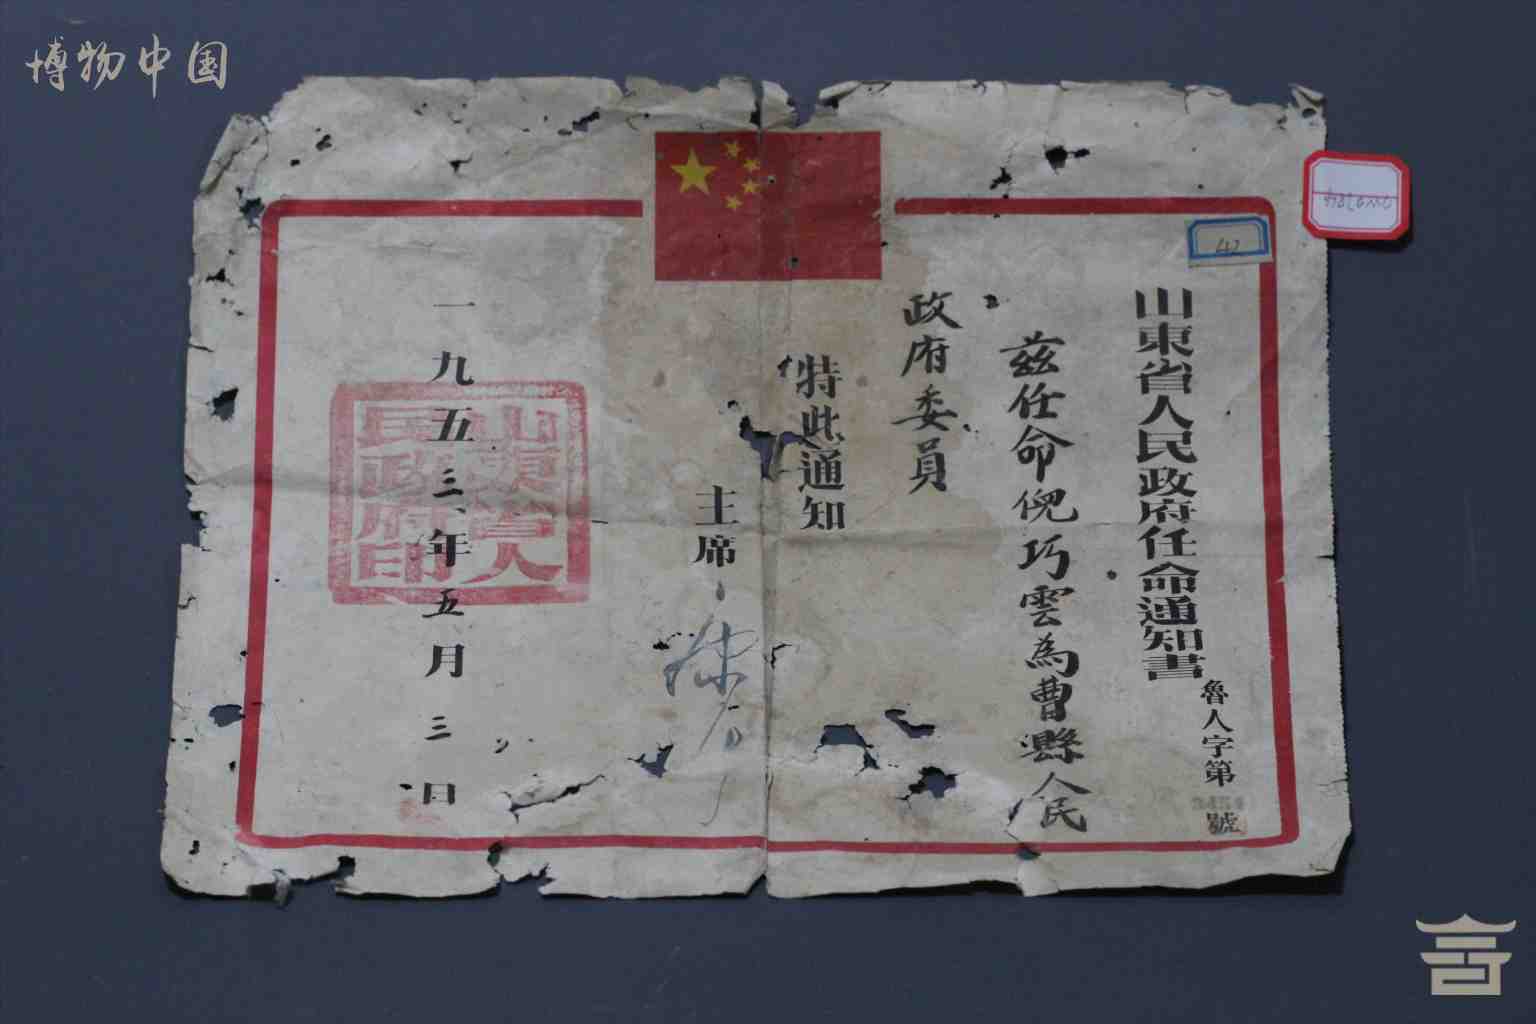 博物中国
42
山東省人民政府任命通知書
魯人字第
號
兹任命倪巧雲為曹縣人民
政府委員
特此通知
主席
一九五三年五月三日
山東省人
民政府印